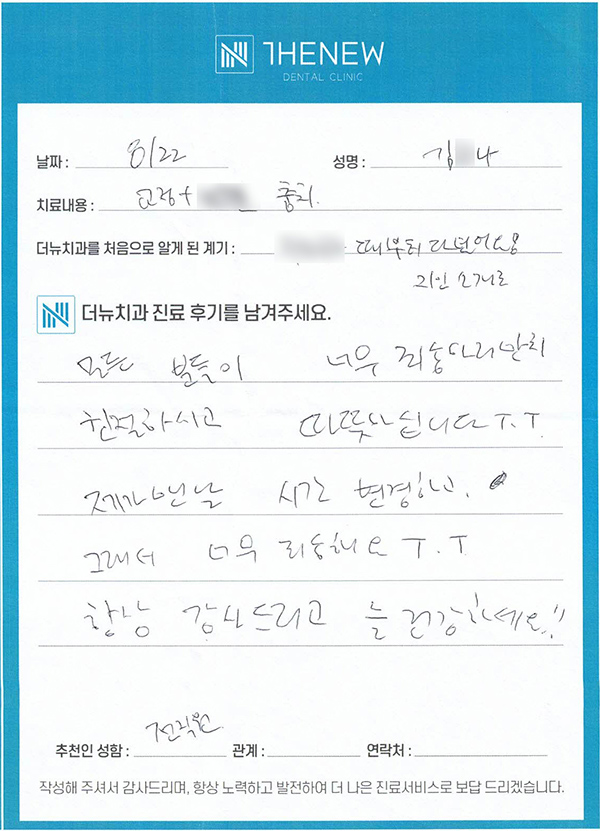 THENEW
DENTAL CLINIC
날짜 : 8/22 성명 : 김 나
치료내용 : 교정+ 충치.
더뉴치과를 처음으로 알게 된 계기 : 때부터 다녔어요
지인 소개로
더뉴치과 진료 후기를 남겨주세요.
모든 분들이 너무 죄송하리만치
친절하시고 따뜻하십니다 T.T
제가 맨날 시간 변경하고.
그래서 너무 죄송해요 T.T
항상 감사드리고 늘 건강하세요!!
전직원
추천인 성함 : 관계 : 연락처 :
작성해 주셔서 감사드리며, 항상 노력하고 발전하여 더 나은 진료서비스로 보답 드리겠습니다.